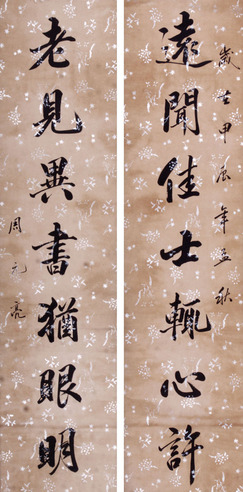 歲在甲辰年孟秋
遠聞佳士輒心許
老見異書猶眼明
周元亮